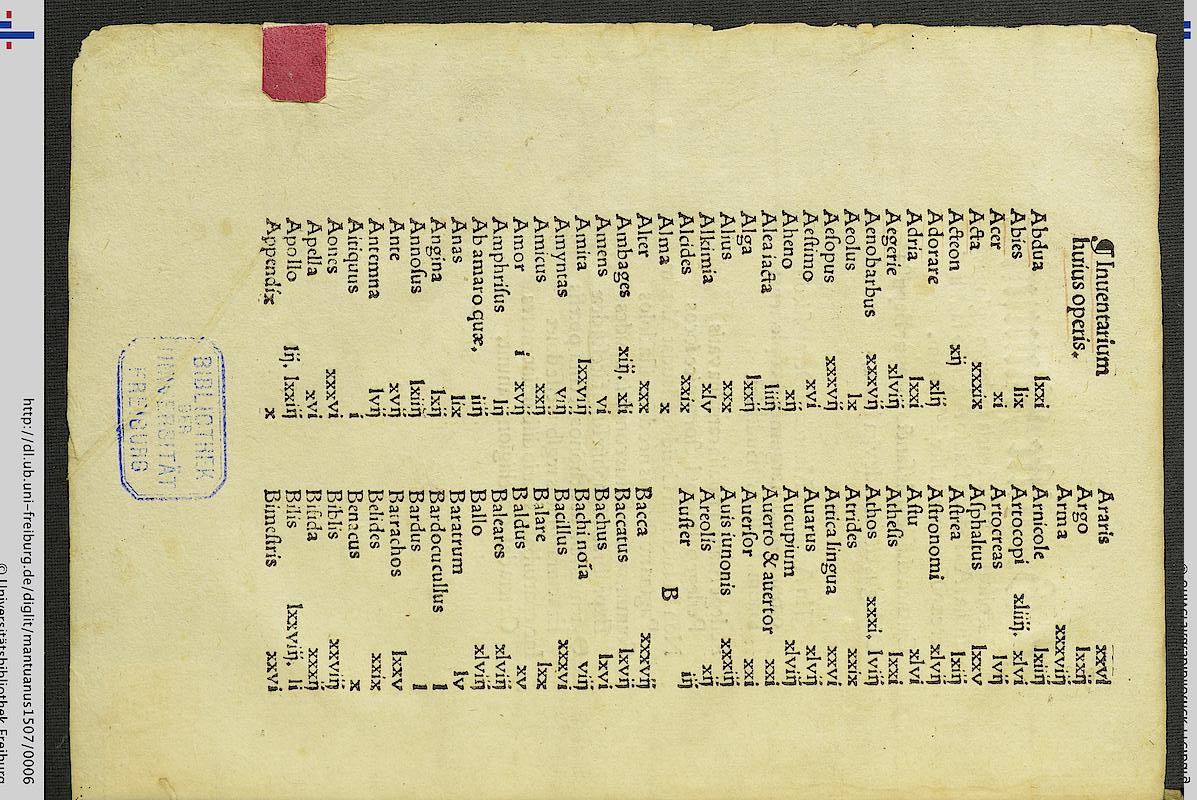 ¶ Inuentarium
huius operis.
Abdua lxxi
Abies lix
Acer xi
Acta xxxix
Acteon xij
Adorare xlij
Adria lxxi
Aegerie xlviij
Aenobarbus xxxvij
Aeolus lx
Aesopus xxxvij
Aestimo xvi
Aheno xij
Alea iacta liiij
Alga lxxij
Alius xxx
Alkimia xlv
Alcides xxix
Alma x
Alter xxx
Ambages xiij. xli
Amens vi
Amita lxxviij
Amyntas viij
Amicus xxij
Amor i xvij
Amphrisus lij
Ab amaro quæ. iiij
Anas lix
Angina lxij
Annosus lxiiij
Ane xvij
Antenna lvij
Atiquus i
Aones xxxvi
Apella xvi
Apollo lij. lxxiij
Appendix x
Araris xxvi
Argo lxxij
Arma xxxviij
Arnicole lxiij
Artocopi xliij. xlvi
Artocreas lvij
Asphaltus lxxv
Astrea lxij
Astronomi xlvij
Astu xlvi
Athesis lxxi
Athos xxxi. lviij
Atrides xxix
Attica lingua xxvi
Auarus xlvij
Aucupium xlviij
Auerro & auertor xxi
Auersor xxi
Auis iunonis xxxiij
Areolis xij
Auster iij
B
Bacca xxxvij
Baccatus lxvij
Bachus lxvi
Bachi noīa viij
Bacillus xxxvi
Balare lxx
Baldus xv
Baleares xlviij
Ballo xlviij
Baratrum lv
Bardocucullus l
Bardus l
Batrachos lxxv
Belides xxix
Benacus x
Biblis xxviij
Bifida xxxij
Bilis lxxviij. li
Bimestris xxvi
BIBLIOTHEK
DER
UNIVERSITÄT
FREIBURG
http://dl.ub.uni-freiburg.de/diglit/mantuanus1507/0006
© Universitätsbibliothek Freiburg